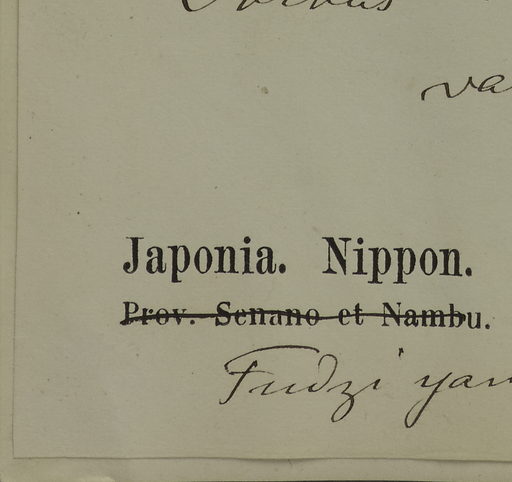 va
Japonia. Nippon.
Prov. Senano et Nambu.
Fudzi yam